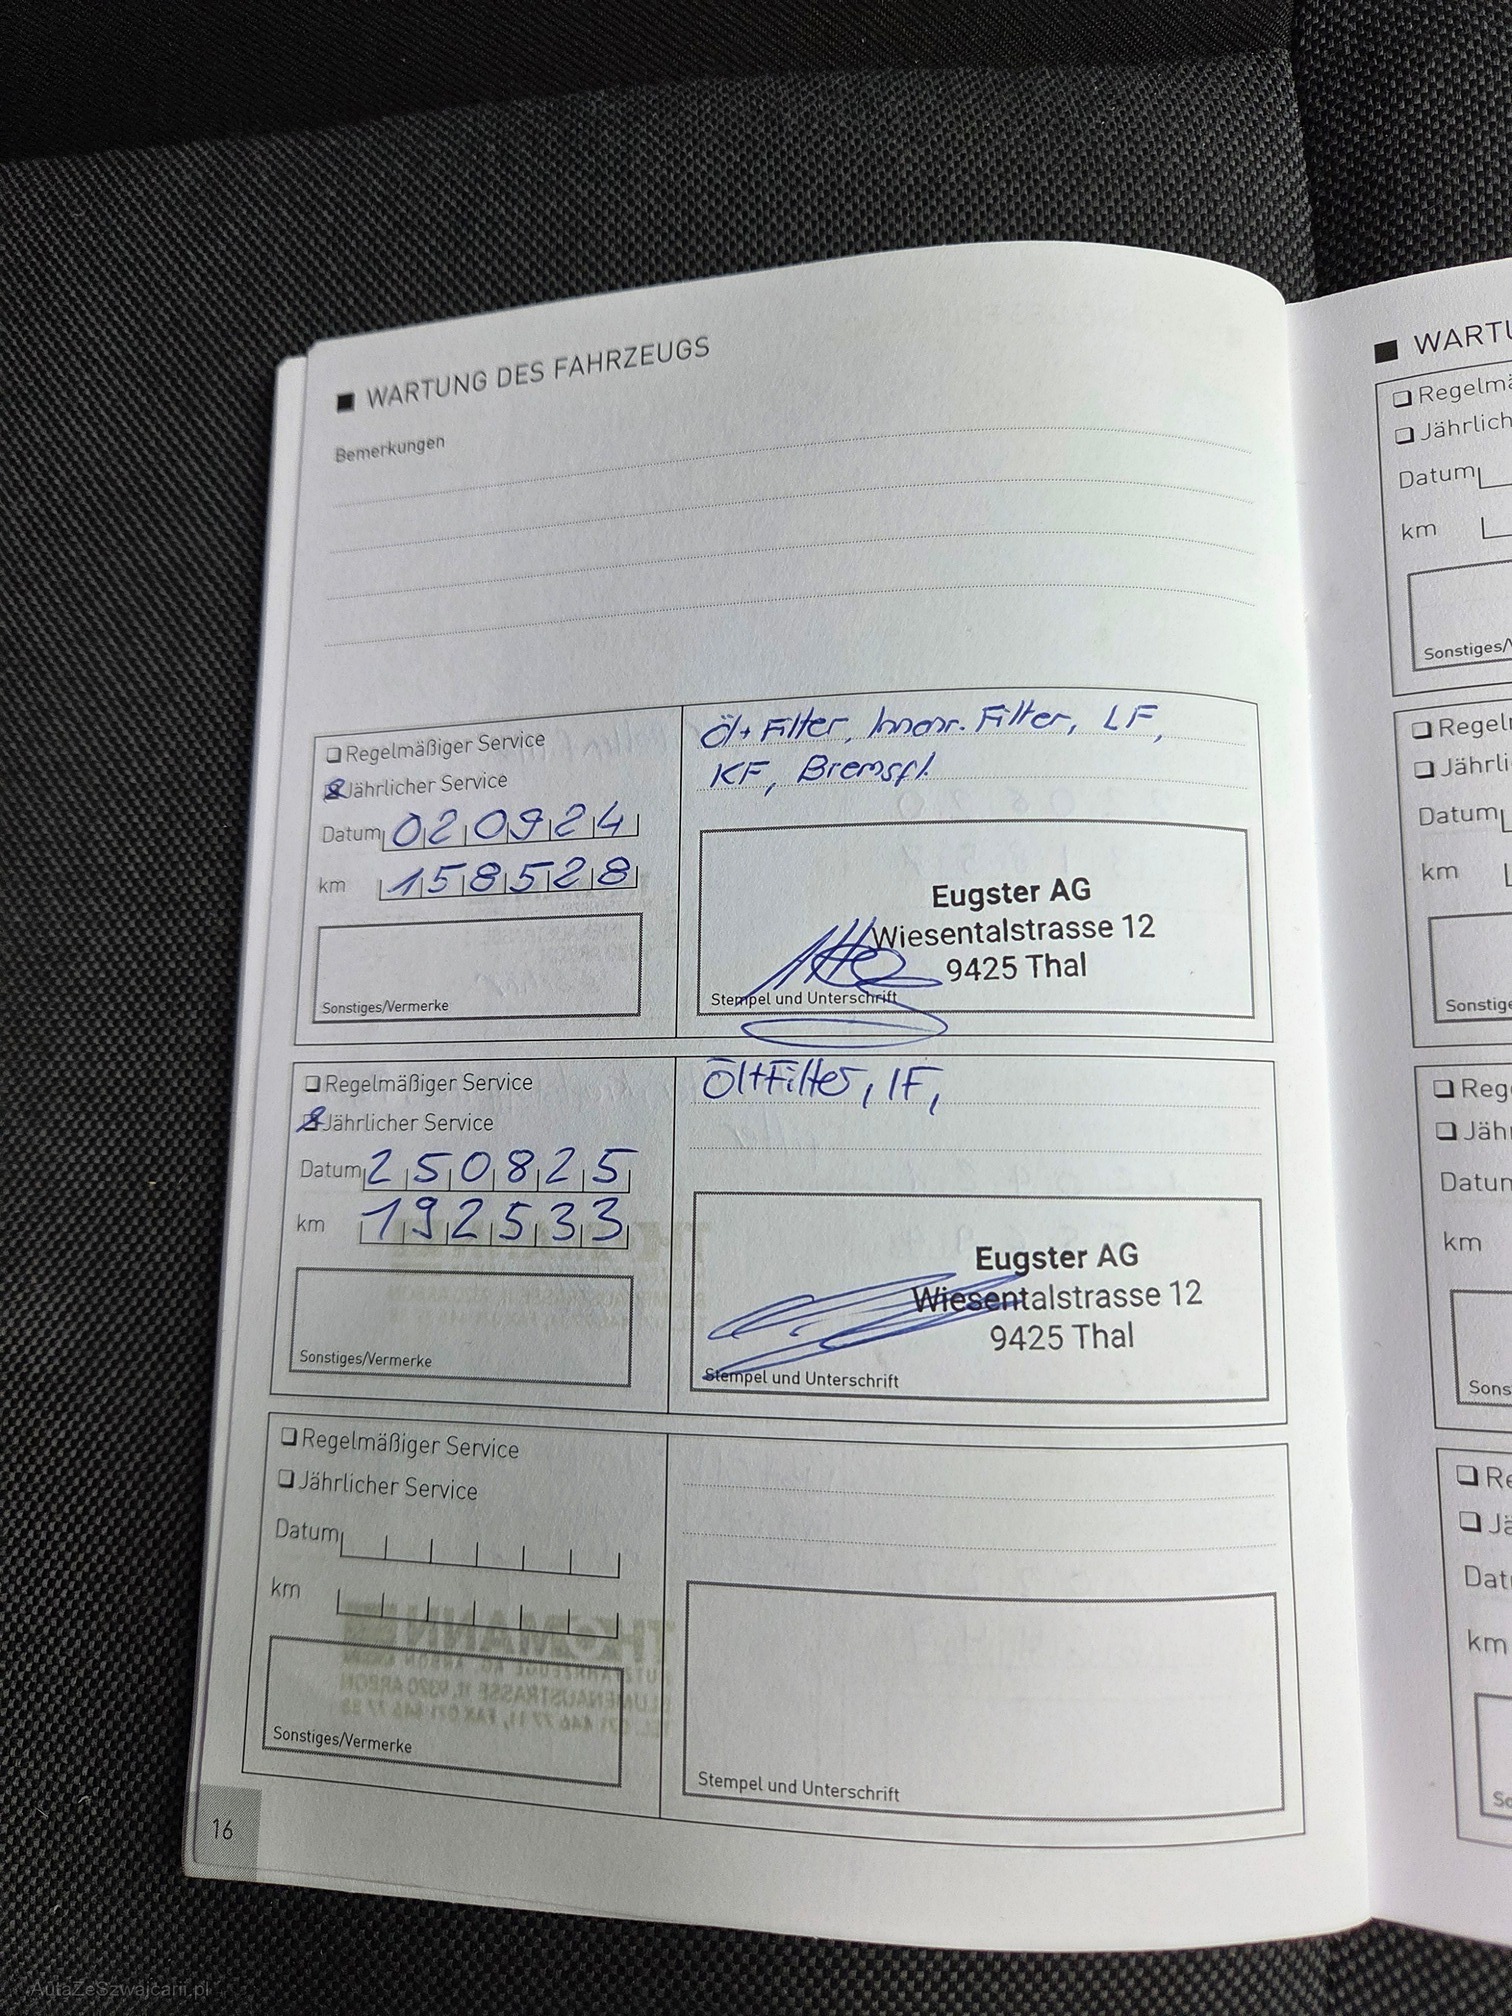 ■ WARTUNG DES FAHRZEUGS
Bemerkungen
Regelmäßiger Service
Jährlicher Service
Datum 020924
km 158528
Sonstiges/Vermerke
Öl+Filter, Innenr. Filter, LF,
KF, Bremsfl.
Eugster AG
Wiesentalstrasse 12
9425 Thal
Stempel und Unterschrift
Regelmäßiger Service
Jährlicher Service
Datum 250825
km 192533
Sonstiges/Vermerke
Öl+Filter, IF,
Eugster AG
Wiesentalstrasse 12
9425 Thal
Stempel und Unterschrift
Regelmäßiger Service
Jährlicher Service
Datum
km
Sonstiges/Vermerke
Stempel und Unterschrift
16
■ WARTU
Regelmä
Jährlich
Datum
km
Sonstiges/V
Regelm
Jährli
Datum
km
Sonstig
Reg
Jäh
Datun
km
Sons
Re
Jä
Dat
km
So
AutaZeSzwajcarii.pl